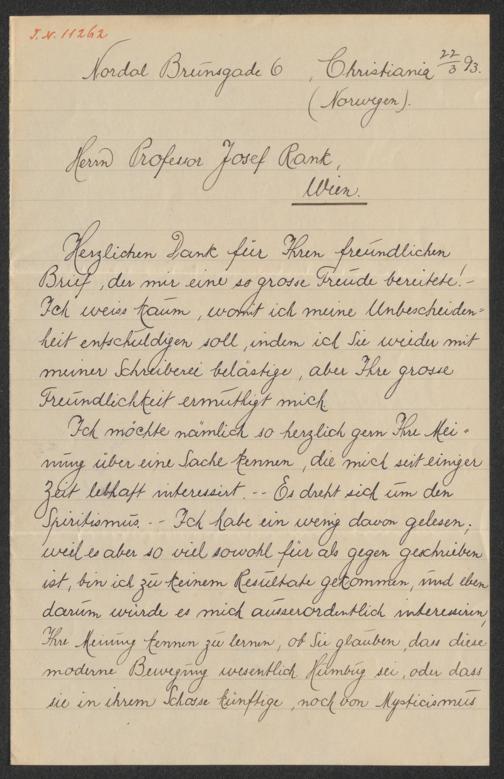 J.N. 11262
Nordal Brunsgade 6, Christiania 22/3 93.
(Norwegen).
Herrn Professor Josef Rank,
Wien.
Herzlichen Dank für Ihren freundlichen
Brief, der mir eine so grosse Freude bereitete! -
Ich weiss kaum, womit ich meine Unbescheiden=
heit entschuldigen soll, indem ich Sie wieder mit
meiner Schreiberei belästige, aber Ihre grosse
Freundlichkeit ermuthigt mich
Ich möchte nämlich so herzlich gern Ihre Mei=
nung über eine Sache kennen, die mich seit einiger
Zeit lebhaft interessirt. -- Es dreht sich um den
Spiritismus. -- Ich habe ein wenig davon gelesen;
weil es aber so viel sowohl für als gegen geschrieben
ist, bin ich zu keinem Resultate gekommen, und eben
darum würde es mich ausserordentlich interessiren,
Ihre Meinung kennen zu lernen, ob Sie glauben, dass diese
moderne Bewegung wesentlich Humbug sei, oder dass
sie in ihrem Schosse künftige, noch von Mysticismus